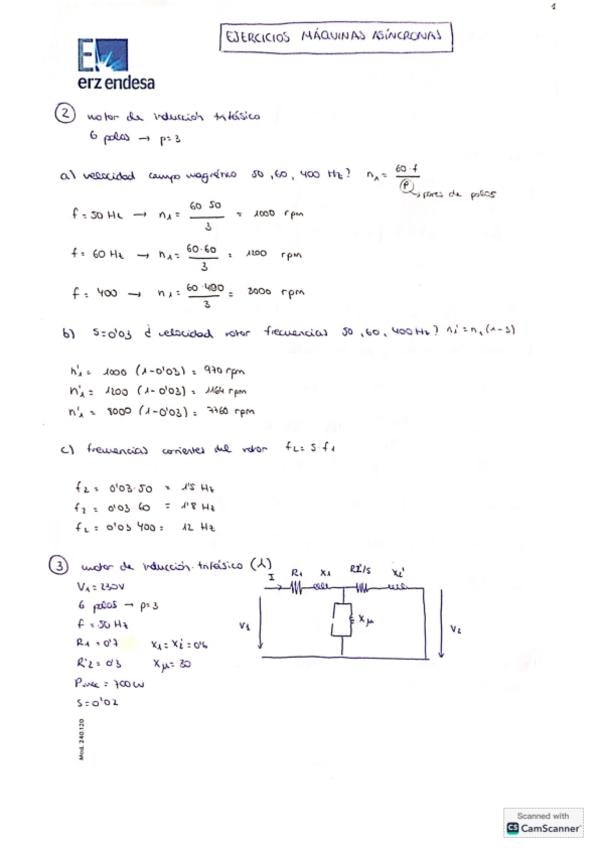 1
EJERCICIOS MÁQUINAS ASÍNCRONAS
E
erz endesa
2 motor de inducción trifásico
6 polos → p=3
a) velocidad campo magnético 50, 60, 400 Hz? n₁ = 60·f / P → pares de polos
f = 50 Hz → n₁ = 60 50 / 3 = 1000 rpm
f = 60 Hz → n₁ = 60·60 / 3 = 1200 rpm
f = 400 → n₁ = 60·400 / 3 = 8000 rpm
b) S=0'03 ¿ velocidad rotor frecuencias 50, 60, 400 Hz? n₁' = n₁(1-s)
n'₁ = 1000 (1-0'03) = 970 rpm
n'₁ = 1200 (1-0'03) = 1164 rpm
n'₁ = 8000 (1-0'03) = 7760 rpm
c) frecuencias corrientes del rotor f₂ = s·f₁
f₂ = 0'03·50 = 1'5 Hz
f₂ = 0'03 60 = 1'8 Hz
f₂ = 0'03 400 = 12 Hz
3 motor de inducción trifásico (λ)
I R₁ X₁ R₂'/s X₂'
V₁ = 230V
6 polos → p=3
f = 50 Hz
V₁ Xμ V₂
R₁ = 0'7 X₁ = X₂' = 0'6
R₂' = 0'3 Xμ = 30
Pmec = 700 W
S = 0'02
Mod. 240.120
Scanned with
CS CamScanner